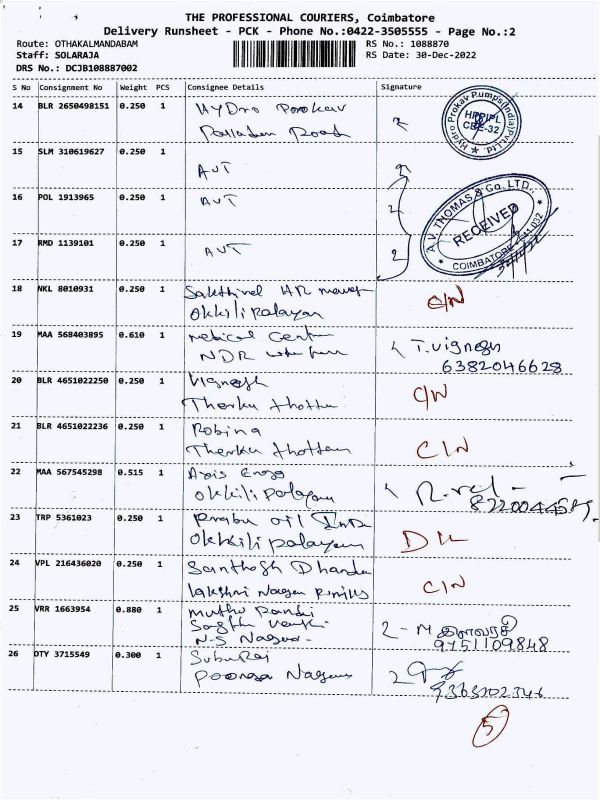 THE PROFESSIONAL COURIERS, Coimbatore
Delivery Runsheet - PCK - Phone No.:0422-3505555 - Page No.:2
Route: OTHAKALMANDABAM RS No.: 1088870
Staff: SOLARAJA RS Date: 30-Dec-2022
DRS No.: DCJB108887002
S No Consignment No Weight PCS Consignee Details Signature
14 BLR 2650498151 0.250 1 Hydro Prokav
Road
Hydro Prokav Pumps(India)Pvt Ltd
HPPIPL
CBE-32
15 SLM 310619627 0.250 1 AVT
16 POL 1913965 0.250 1 AVT
17 RMD 1139101 0.250 1 AVT
A.V. THOMAS & Co. LTD.,
RECEIVED
COIMBATORE
18 NKL 8010931 0.250 1 Sakthivel HR
Okkilipalayam C/N
19 MAA 568403895 0.610 1 Medical Centre T. Vignesh
NDR 6382046628
20 BLR 4651022250 0.250 1 Vignesh C/N
Therku thottam
21 BLR 4651022236 0.250 1 Robina
Therku thottam C/N
22 MAA 567545298 0.515 1 Axis Engg
Okkilipalayam
23 TRP 5361023 0.250 1 Prabu oil Ind
Okkilipalayam DL
24 VPL 216436020 0.250 1 Santhosh Dhandu
Lakshmi Nagar C/N
25 VRR 1663954 0.880 1 Muthu Pandi
2 - M இளவரசி
N.S Nagar 9751109848
26 DTY 3715549 0.300 1 Suburaj
Poonga Nagar
5